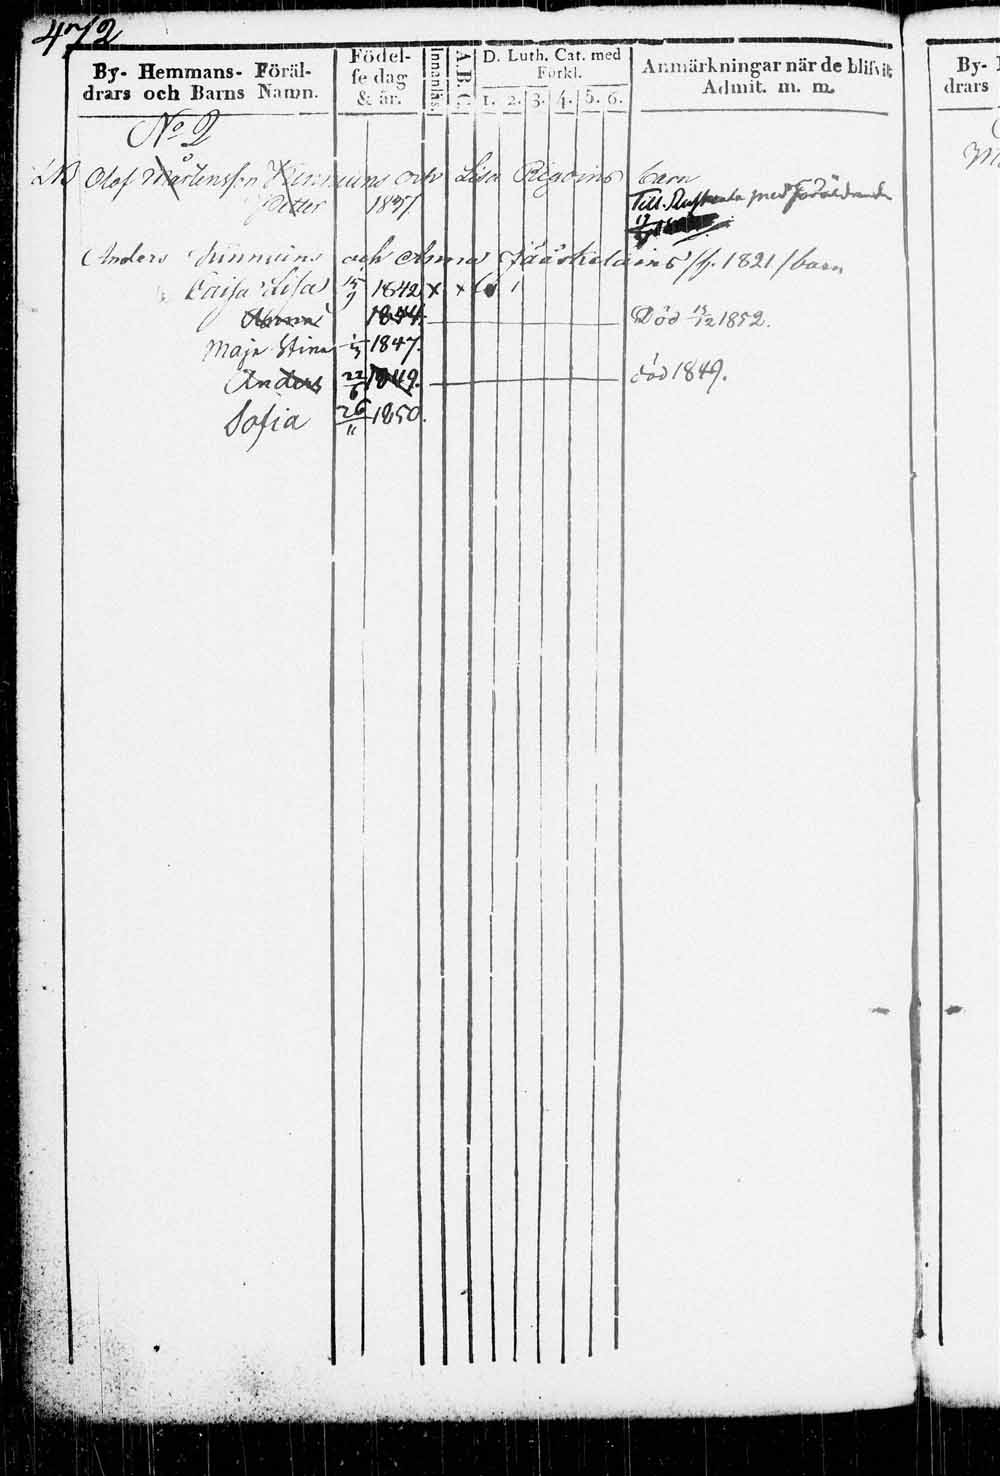 472
By- Hemmans- Föräl-
drars och Barns Namn.
Födel-
se dag
& år.
Innanläs.
A.B.C.
D. Luth. Cat. med
Förkl.
1. 2. 3. 4. 5. 6.
Anmärkningar när de blifvit
Admit. m. m.
By-
drars
No 2
Olof Mårtensson och Lisa barn
Petter
Till med Föräldrarna
Anders och Anna Jääskeläins /f. 1821/ barn
Caisa Lisa 15/9 1842 x x 1
Anna 1844. Död 1852.
Maja Stina 1847.
Anders 22/6 1849. död 1849.
Sofia 26/11 1850.